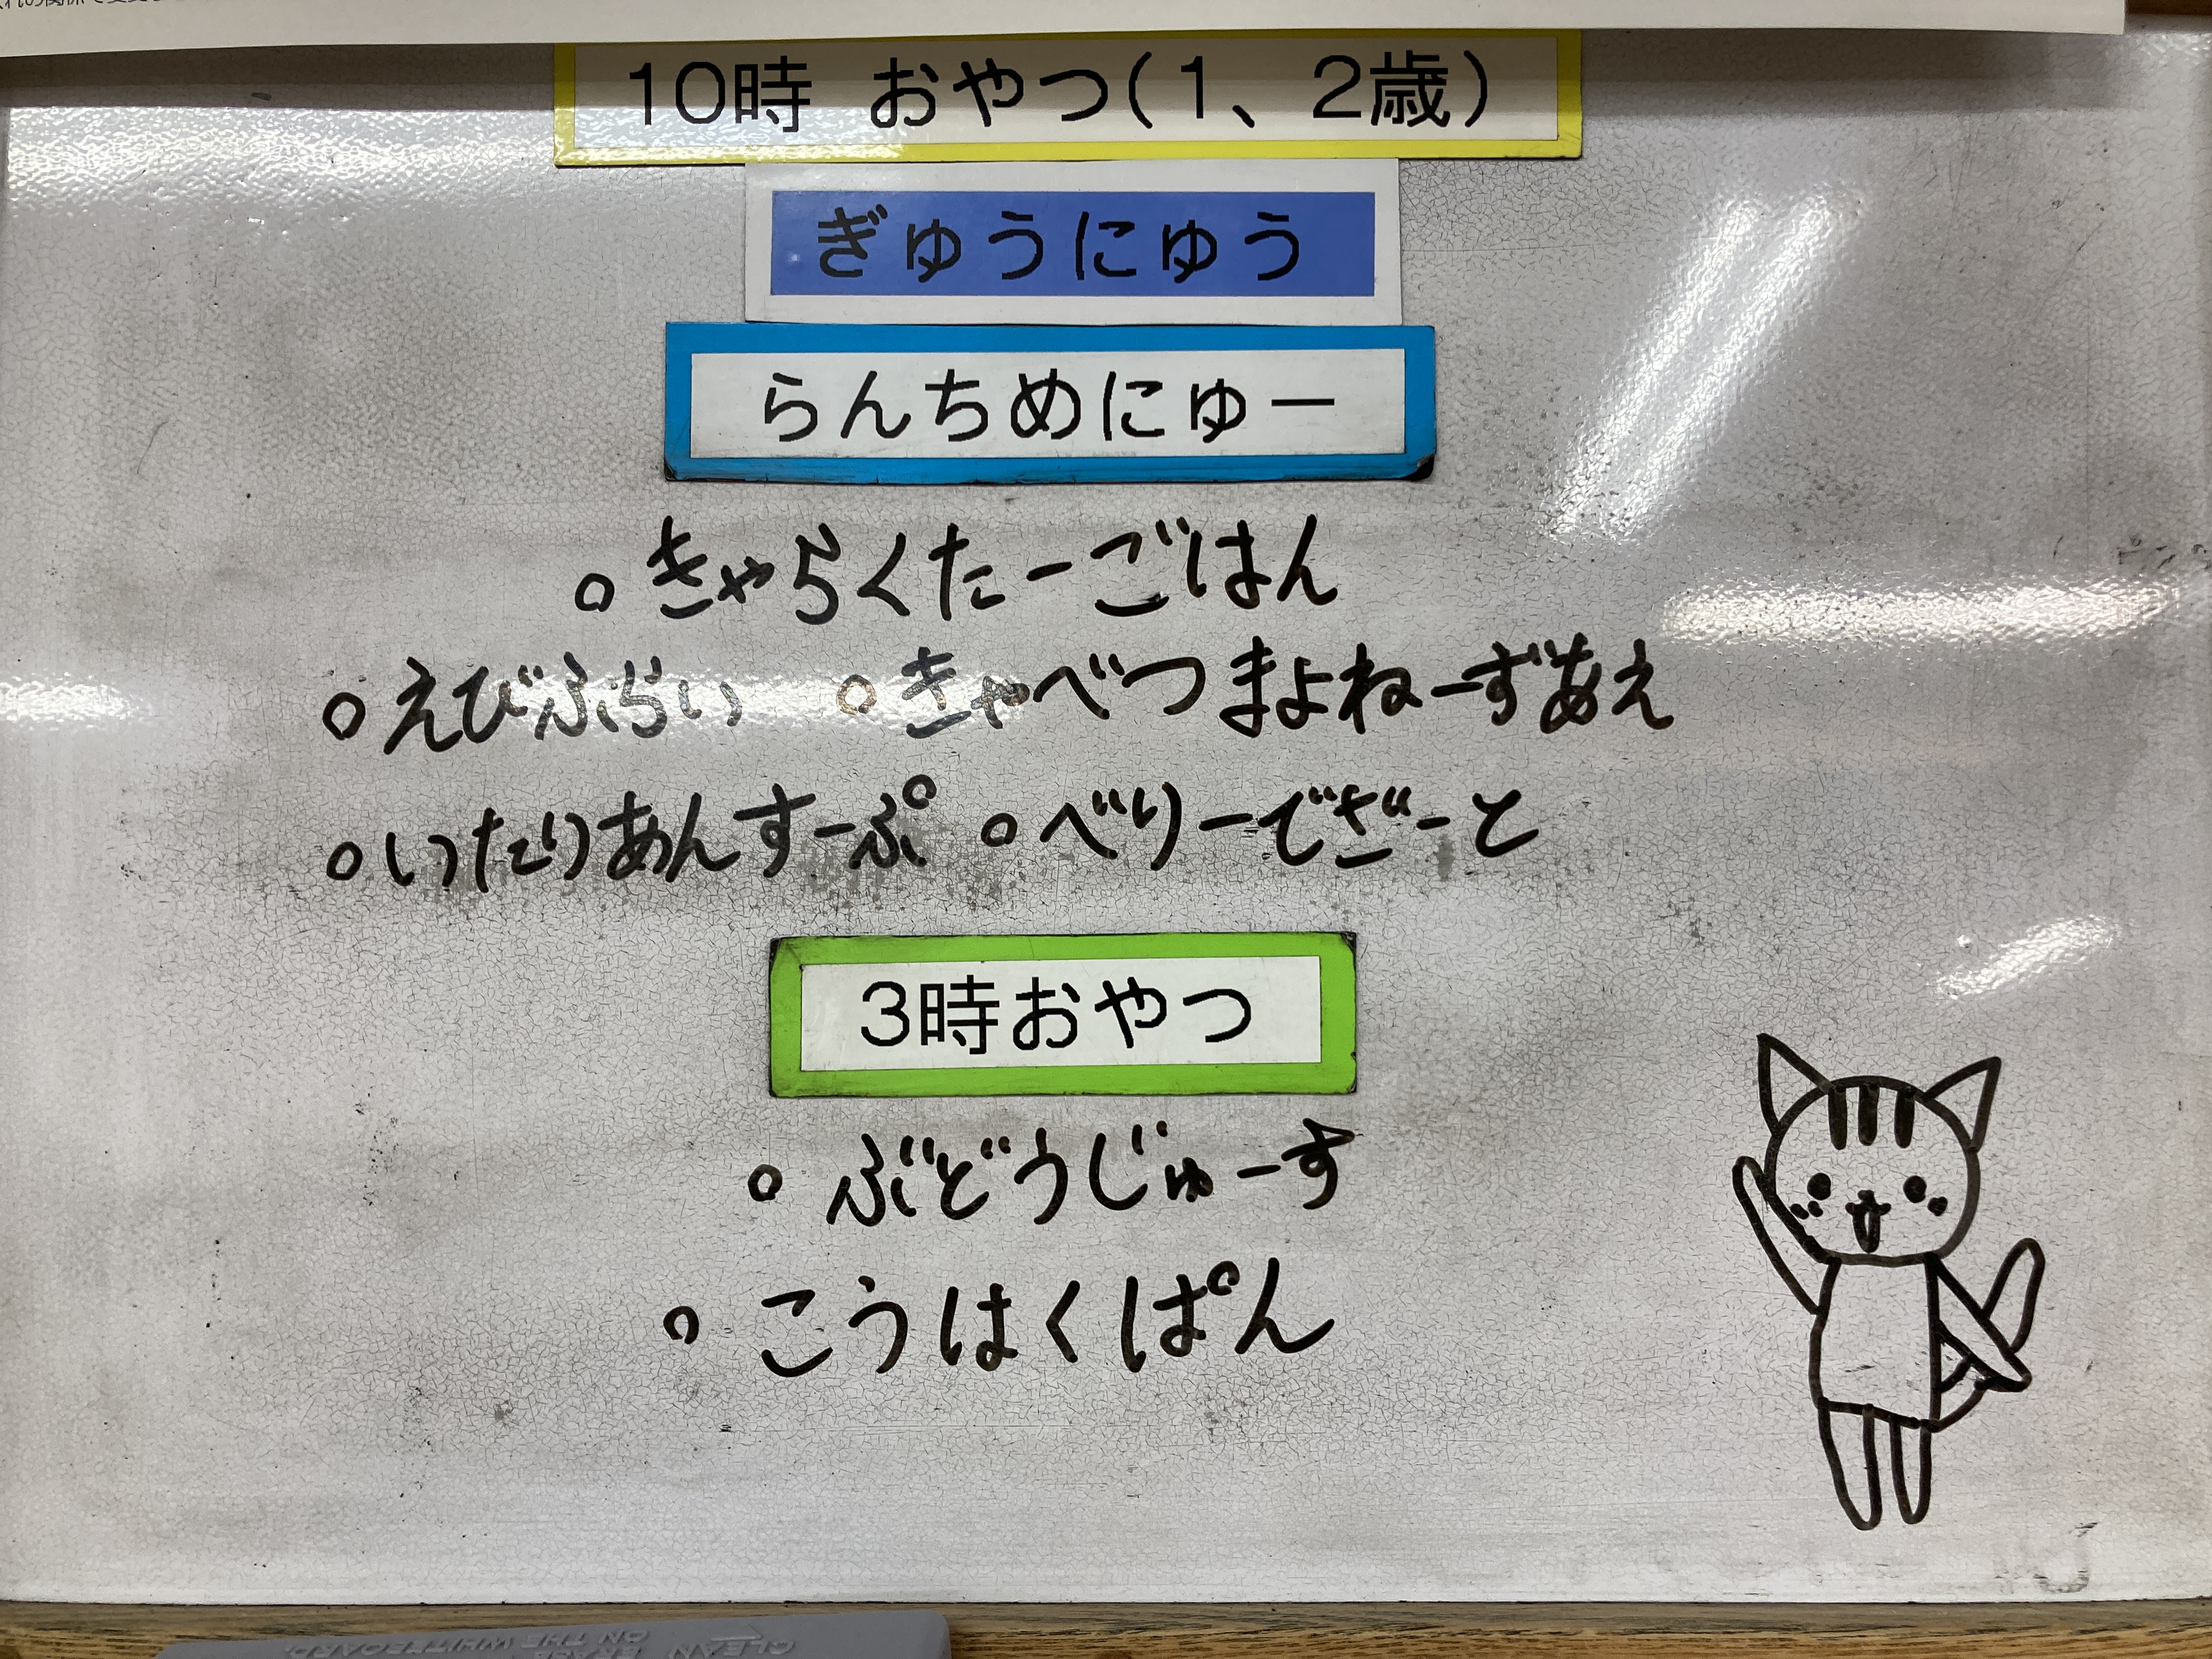 10時 おやつ(1、2歳)
ぎゅうにゅう
らんちめにゅー
○ きゃらくたーごはん
○ えびふらい ○ きゃべつまよねーずあえ
○ いたりあんすーぷ ○ べりーでざーと
3時おやつ
○ ぶどうじゅーす
○ こうはくぱん
CLEAN ERASE ON THE WHITEBOARD.